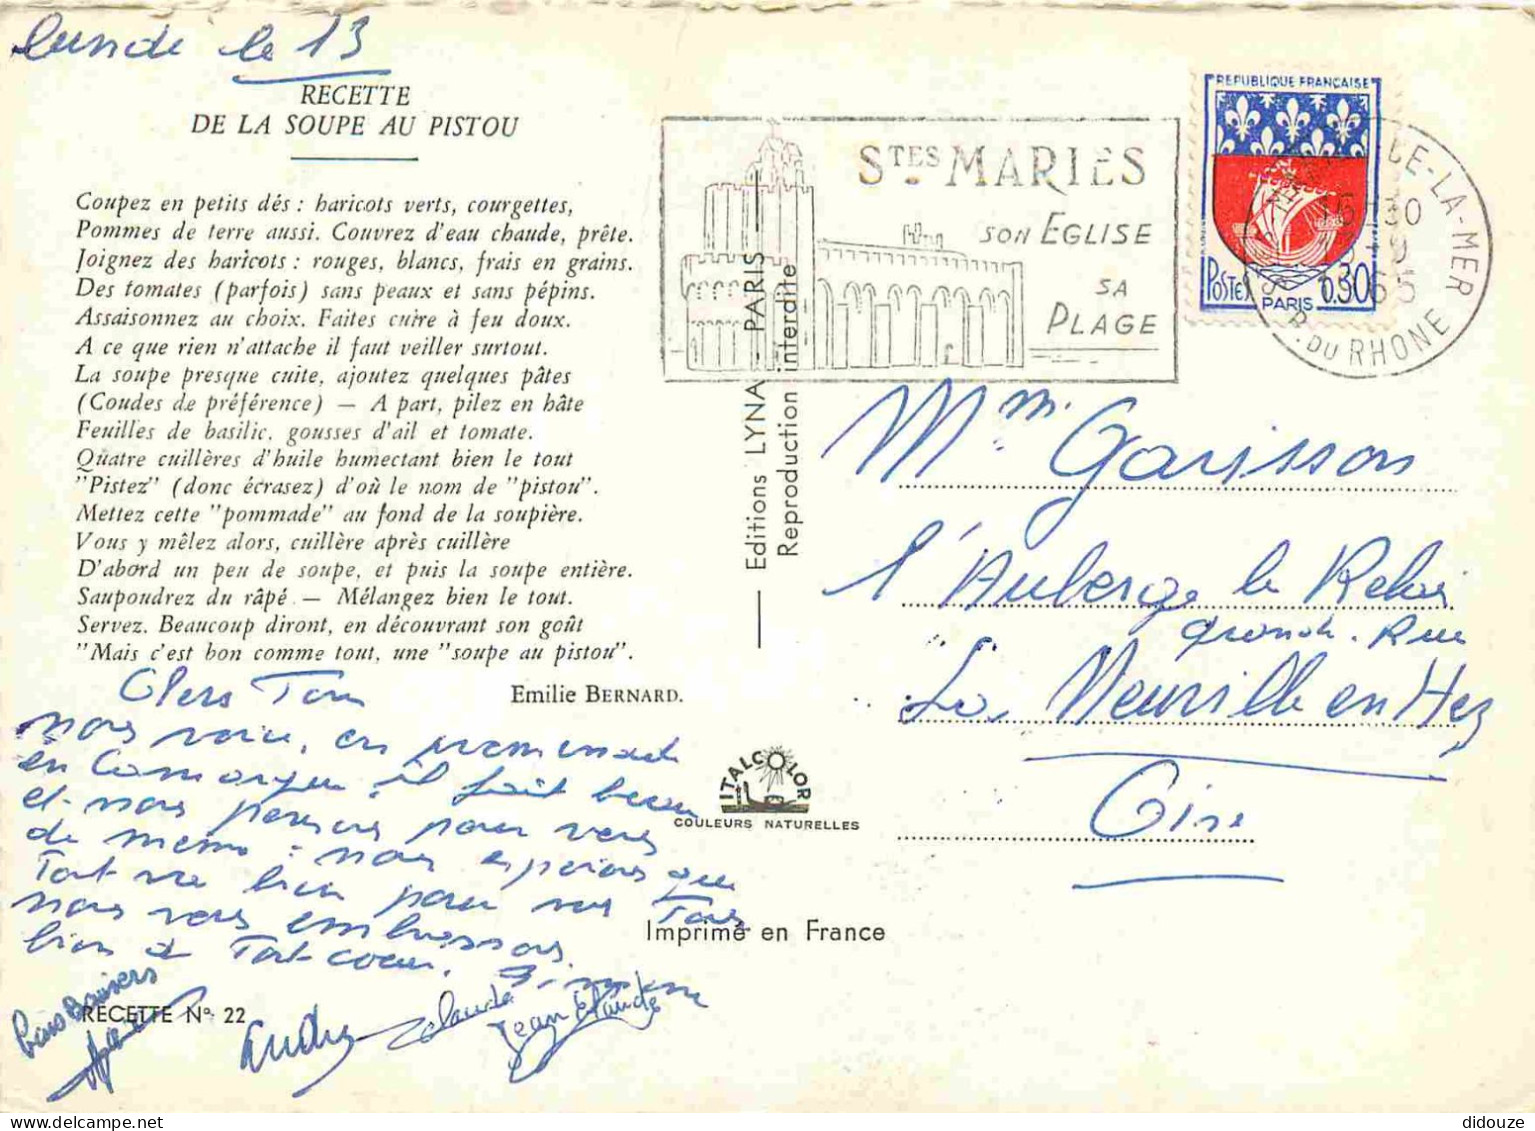 lundi le 13
RECETTE
DE LA SOUPE AU PISTOU
Coupez en petits dés : haricots verts, courgettes,
Pommes de terre aussi. Couvrez d'eau chaude, prête.
Joignez des haricots : rouges, blancs, frais en grains.
Des tomates (parfois) sans peaux et sans pépins.
Assaisonnez au choix. Faites cuire à feu doux.
A ce que rien n'attache il faut veiller surtout.
La soupe presque cuite, ajoutez quelques pâtes
(Coudes de préférence) — A part, pilez en hâte
Feuilles de basilic, gousses d'ail et tomate.
Quatre cuillères d'huile humectant bien le tout
"Pistez" (donc écrasez) d'où le nom de "pistou".
Mettez cette "pommade" au fond de la soupière.
Vous y mêlez alors, cuillère après cuillère
D'abord un peu de soupe, et puis la soupe entière.
Saupoudrez du râpé. — Mélangez bien le tout.
Servez. Beaucoup diront, en découvrant son goût
"Mais c'est bon comme tout, une "soupe au pistou".
Emilie BERNARD.
Chers Tous
nous voici, en promenade
en Camargue il fait beau
et nous pensons pour vous
de même : nous espérons que
Tout va bien pour vous Tous
nous vous embrassons
bien de Tout coeur. Simone
bons Baisers
André Claude
Jean Claude
RECETTE Nº 22
Editions LYNA PARIS
Reproduction interdite
STES MARIES
SON EGLISE
SA
PLAGE
REPUBLIQUE FRANÇAISE
POSTES
PARIS
0.30
LE-LA-MER
16 30
9
1965
B. DU RHONE
Mme Garisson
l'Auberge le Relais
Grande Rue
La Neuville en Hez
Oise
ITALCOLOR
COULEURS NATURELLES
Imprimé en France
delcampe.net
didouze